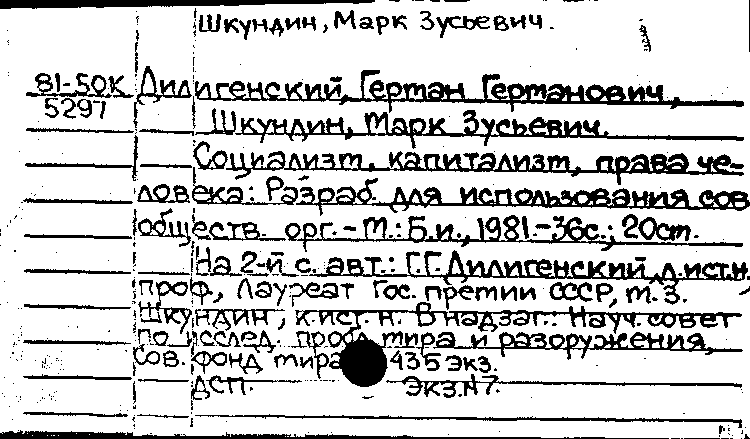 Шкундин, Марк Зусьевич.
81-50К Дилигенский, Герман Германович,
5297
Шкундин, Марк Зусьевич.
Социализм, капитализм, права че-
ловека: Разраб. для использования сов
обществ. орг. - М.: Б.и., 1981.-36с.; 20см.
На 2-й с. авт.: Г.Г.Дилигенский, д.ист.н.,
проф., Лауреат Гос. премии СССР, М.З.
Шкундин, к.ист.н. В надзаг.: Науч. совет
по исслед. пробл. мира и разоружения,
Сов. фонд мира 435 экз.
ДСП. Экз.№7.